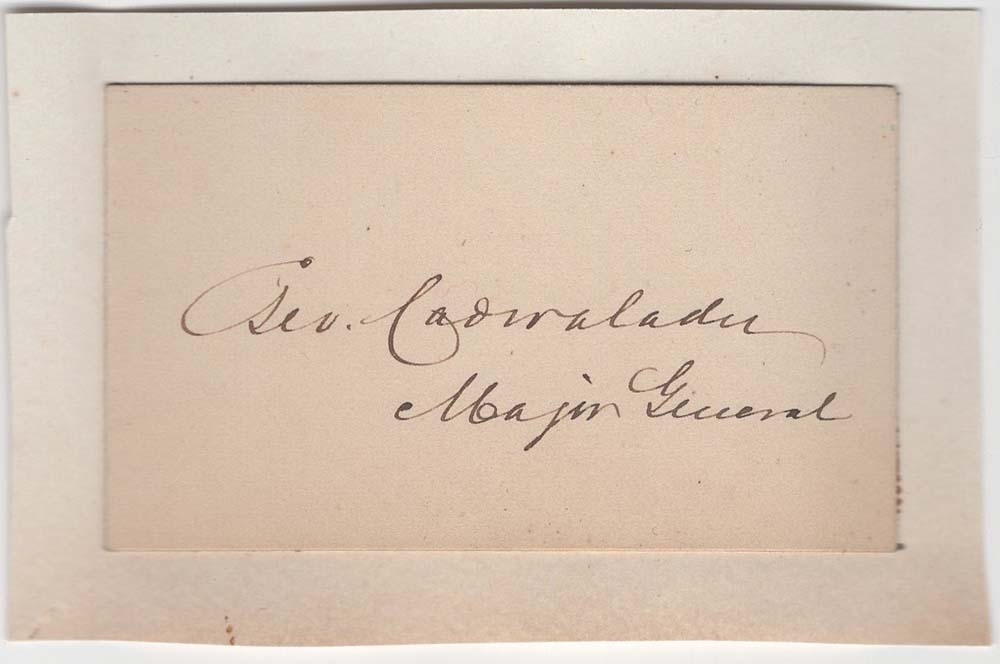 Geo. Cadwalader
Major General